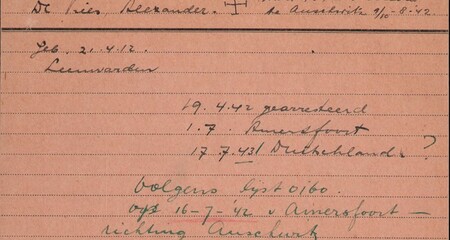 De Vries Alexander. te Auschwitz 9/10-8-42
Geb. 21.4.12.
Leeuwarden
19.4.42 gearresteerd
1.7 Amersfoort
17.7.43! Duitschland. ?
Volgens lijst oibo.
op 16-7-'42 v Amersfoort —
richting Auschwitz